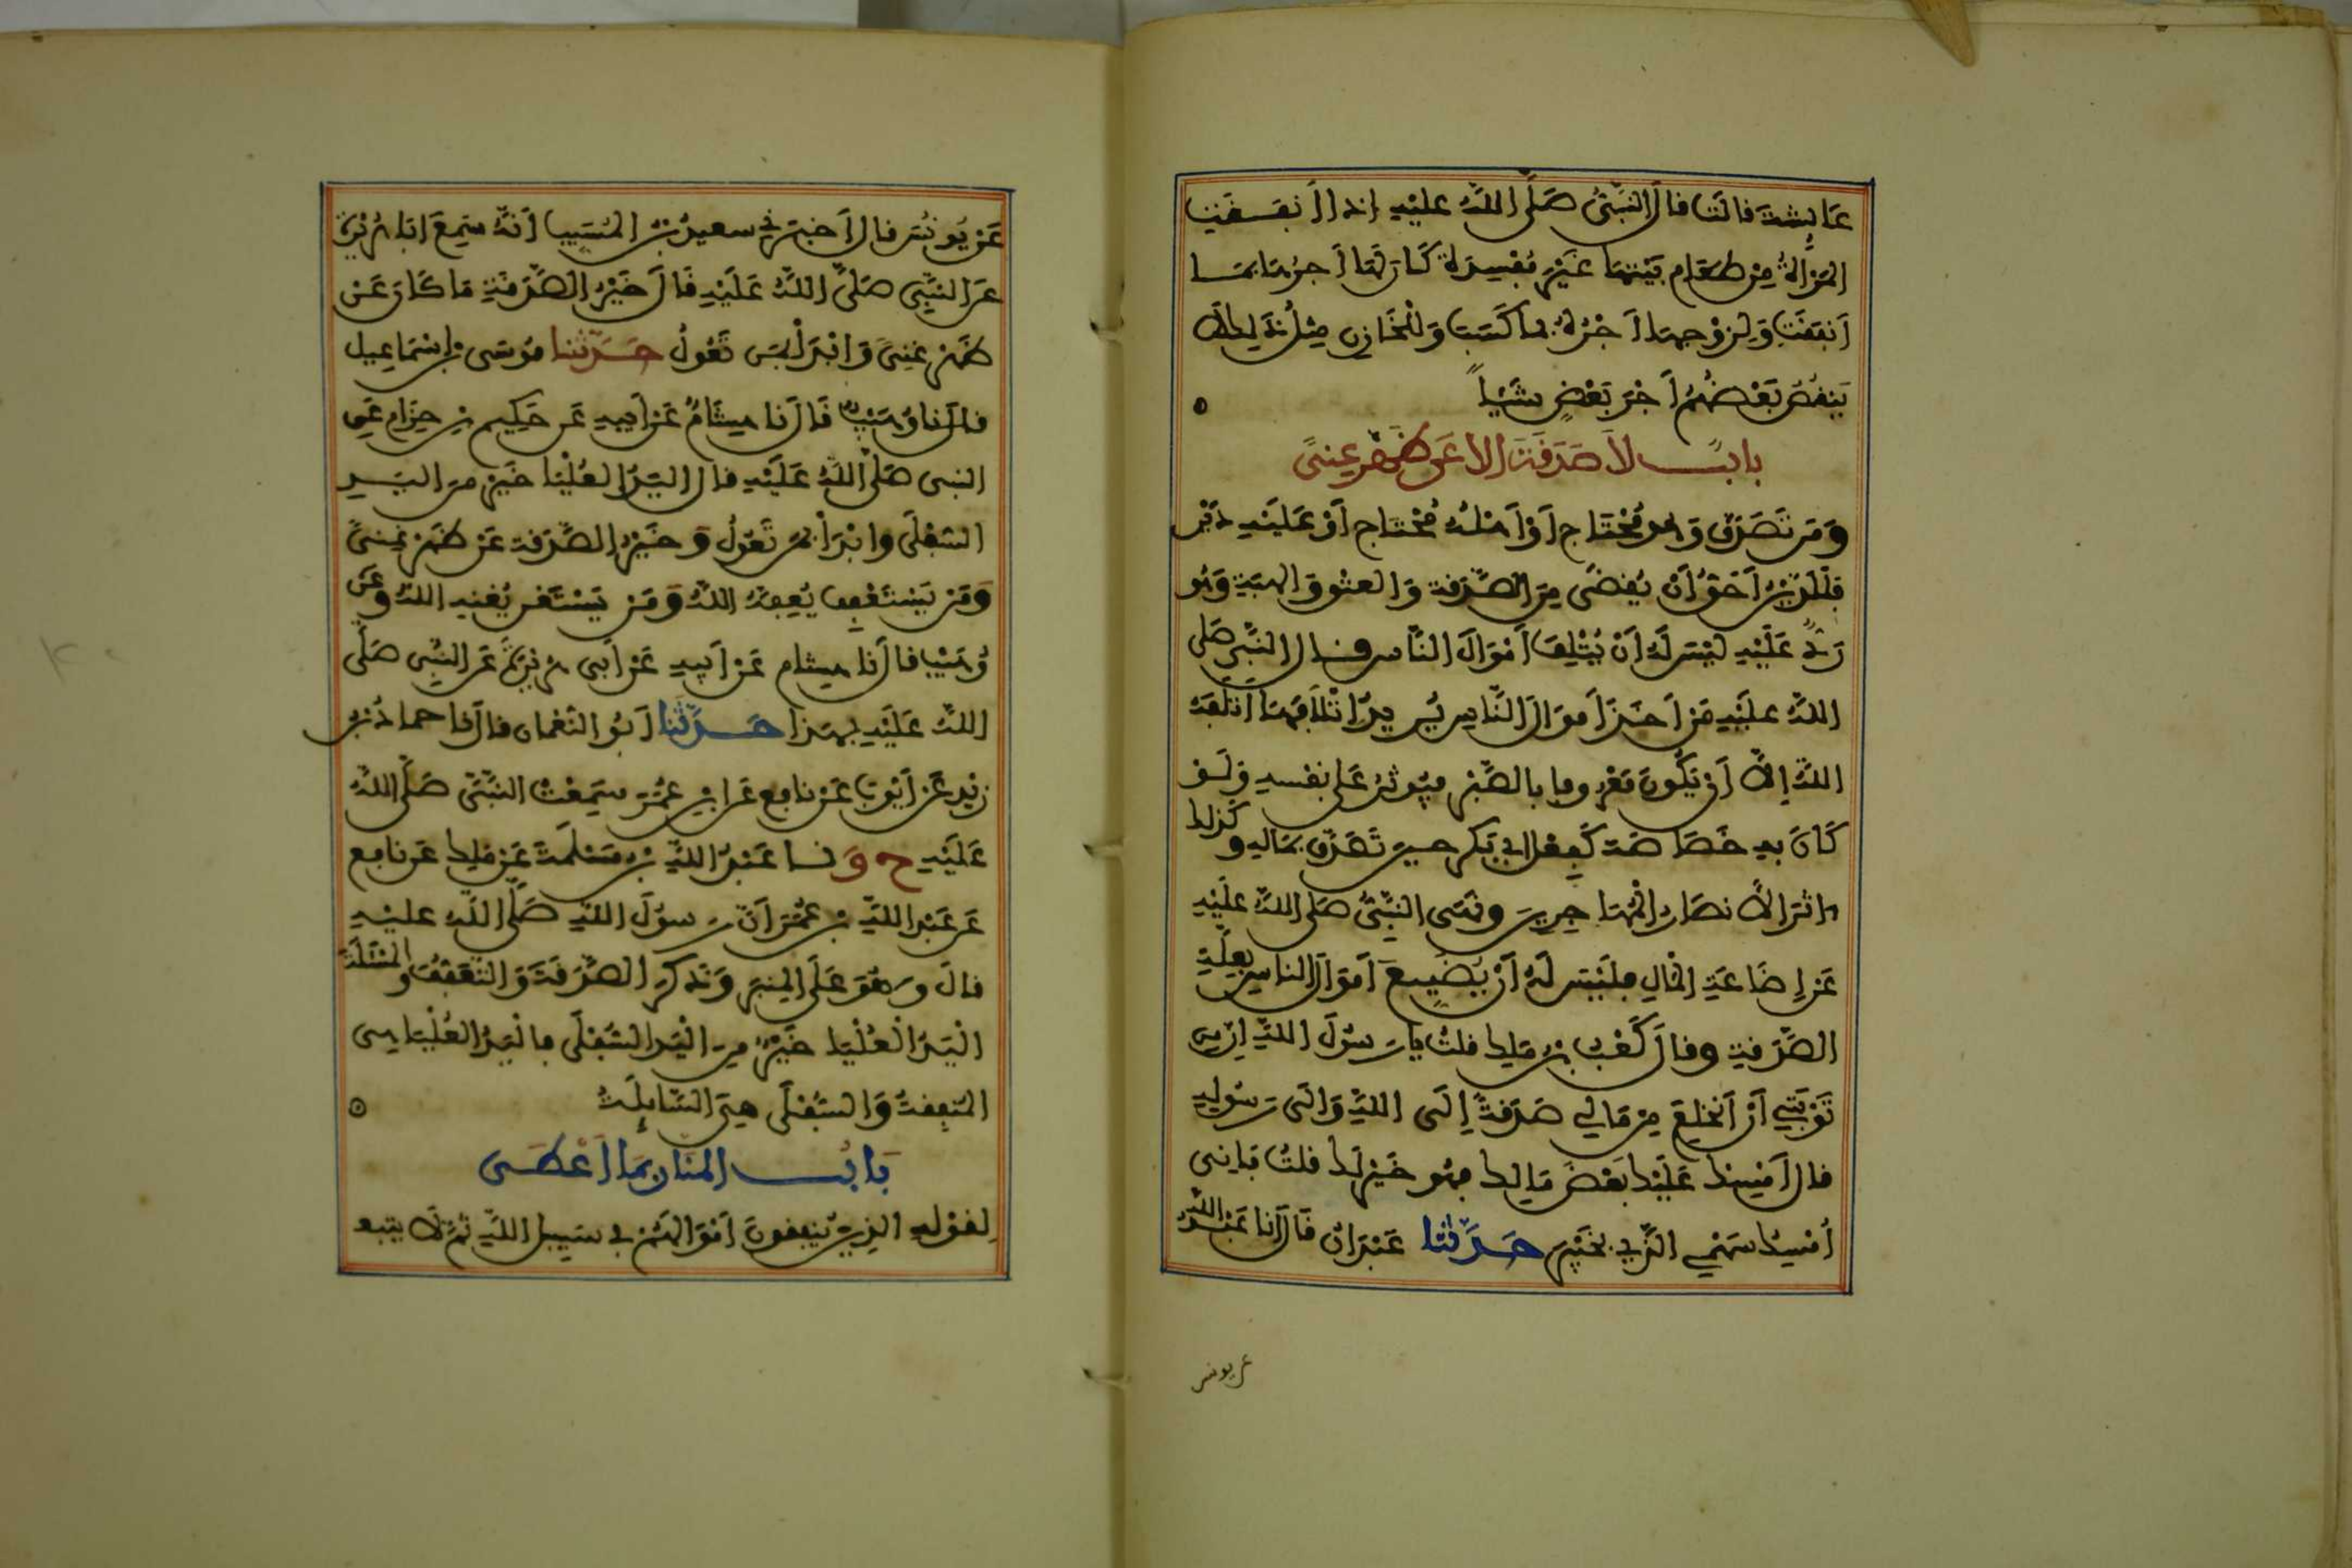 عَائِشَةَ قالَت قالَ النَّبِيُّ صَلَّى اللَّهُ عليْهِ إذا أنفَقَتِ
المرْأةُ مِنْ طعَامِ بَيْتِهَا غَيْرَ مُفْسِدَةٍ كَانَ لَهَا أجرُهَا بمَا
أنفَقَتْ وَلِزَوْجِهَا أَجْرُهُ بما كَسَبَ وَلِلْخَازِنِ مِثلُ ذَلِكَ لَا
يَنقُصُ بَعْضُهُمْ أَجْرَ بَعْضٍ شَيْئاً
بابٌ لاَ صَدَقَةَ إلا عَن ظَهْرِ غِنىً
وَمَن تَصَدَّقَ وَهُوَ مُحْتَاج أَوْ أَهْلُهُ مُحْتاج أَوْ عَلَيْهِ دَيْن
فَالدَّيْنُ أَحَقُّ أَنْ يُقْضَى مِنَ الصَّدَقة وَالعتْقِ وَالهبَةِ وَهُو
رَدٌّ عَلَيْهِ لَيْسَ لَهُ أنْ يُتْلِفَ أمْوَالَ النَّاسِ وقال النَّبِي صَلى
اللهُ عليْهِ مَن أَخَذَ أَموَالَ النَّاسِ يُريدُ إتْلَافَهَا أتلفَهُ
اللَّهُ إلاَّ أن يَّكُونَ مَعْرُوفا بالصَّبْرِ فيُوثرُ عَلى نفسِهِ وَلَو
كَانَ بِهِ خَصَاصَة كَفِعْل أبي بَكر حين تَصَدَّقَ بمَاله وكذلك
اثَرَ الأنصَارُ المُهَاجِرِينَ ونَهَى النَّبِيُّ صَلى اللهُ عَلَيْهِ
عَن إضَاعَةِ المالِ فلَيْسَ لَهُ أن يُّضَيِّعَ أَموَالَ الناسِ بعِلَّةِ
الصَّدَقةِ وقالَ كَعْبُ بنُ مَلِك قلتُ يارَسُولَ اللَّهِ إنّ مِن
تَوْبَتِي أن أَنخَلِعَ مِن مَّالِي صَدَقةً إِلَى اللَّهِ وَإلَى رَسُولِهِ
قال أَمْسِك عَلَيْك بَعْضَ مَالِك فهُو خَيْر لَك قلتُ فَإِنِّي
أُمْسِكُ سَهْمِي الذِي بخَيْبَر حَدَّثنَا عَبْدَانُ قَالَ أنا عَبْدُ اللَّهِ
عن يونس
عَن يُونُسَ قالَ أَخبَرَنِي سعيدُ بنُ المُسَيِّبِ أَنَّهُ سَمِعَ أبَا هُرَيْرَةَ
عَنِ النَّبِي صَلَّى اللَّهُ عَلَيْهِ قَالَ خَيْرُ الصَّدَقَةِ مَا كَانَ عَن
ظَهْرِ غِنىً وَابْدَأْ بمَن تَعُولُ حَدَّثنا مُوسَى بنُ إسْمَاعِيل
قالَ نا وُهَيْبٌ قَالَ نَا هِشَامٌ عَن أَبِيهِ عَن حَكِيم بْنِ حِزَام عَنِ
النبي صَلى اللَّهُ عَلَيْهِ قال اليَدُ العُلْيَا خَيْر مِن اليَدِ
السُّفْلَى وابْدَأْ بمَن تَعُولُ وَخَيْرُ الصَّدَقة عَن ظَهْرِ غِنىً
وَمَن يَسْتَعْفِف يُعِفَّهُ اللَّهُ وَمَن يَسْتَغْنِ يُغْنِهِ اللَّهُ وَعَن
وُهَيْبٍ قالَ أنا هِشام عَن أَبِيهِ عَن أَبِي هُرَيْرَةَ عَنِ النَّبِيِ صَلَّى
اللَّهُ عَلَيْهِ بهَذا حَدَّثَنَا أبُو النُّعْمانِ قالَ نا حمادُ بْن
زَيْدٍ عَن أَيُّوبَ عَن نافِع عَنِ ابْنِ عُمَرَ سَمِعْتُ النَّبِيَّ صَلَّى اللَّهُ
عَلَيْهِ ح وَ نا عَبْدُ اللَّهِ بنُ مَسْلَمَةَ عَن مَلِك عَن نافِع
عَن عَبْدِ اللَّهِ بنِ عُمَرَ أنَّ رَسُولَ اللَّهِ صَلَّى اللَّهُ عليْهِ
قالَ وَهُوَ عَلَى المِنبَرِ وَذَكَرَ الصَّدَقَةَ وَالتَّعَفُّفَ وَالمَسْئَلَةَ
الْيَدُ الْعُلْيَا خَيْرٌ مِنَ الْيَدِ السُّفْلَى فالْيَدُ العُلْيَا هِى
المُنفِقةُ وَالسُّفْلَى هِيَ السَّائِلَةُ
بَابُ المنَّانِ بمَا أَعْطَى
لِقَوْلهِ الذِينَ يُنفِقونَ أَمْوَالَهُمْ في سَبِيلِ اللَّهِ ثُمَّ لاَ يتبعو